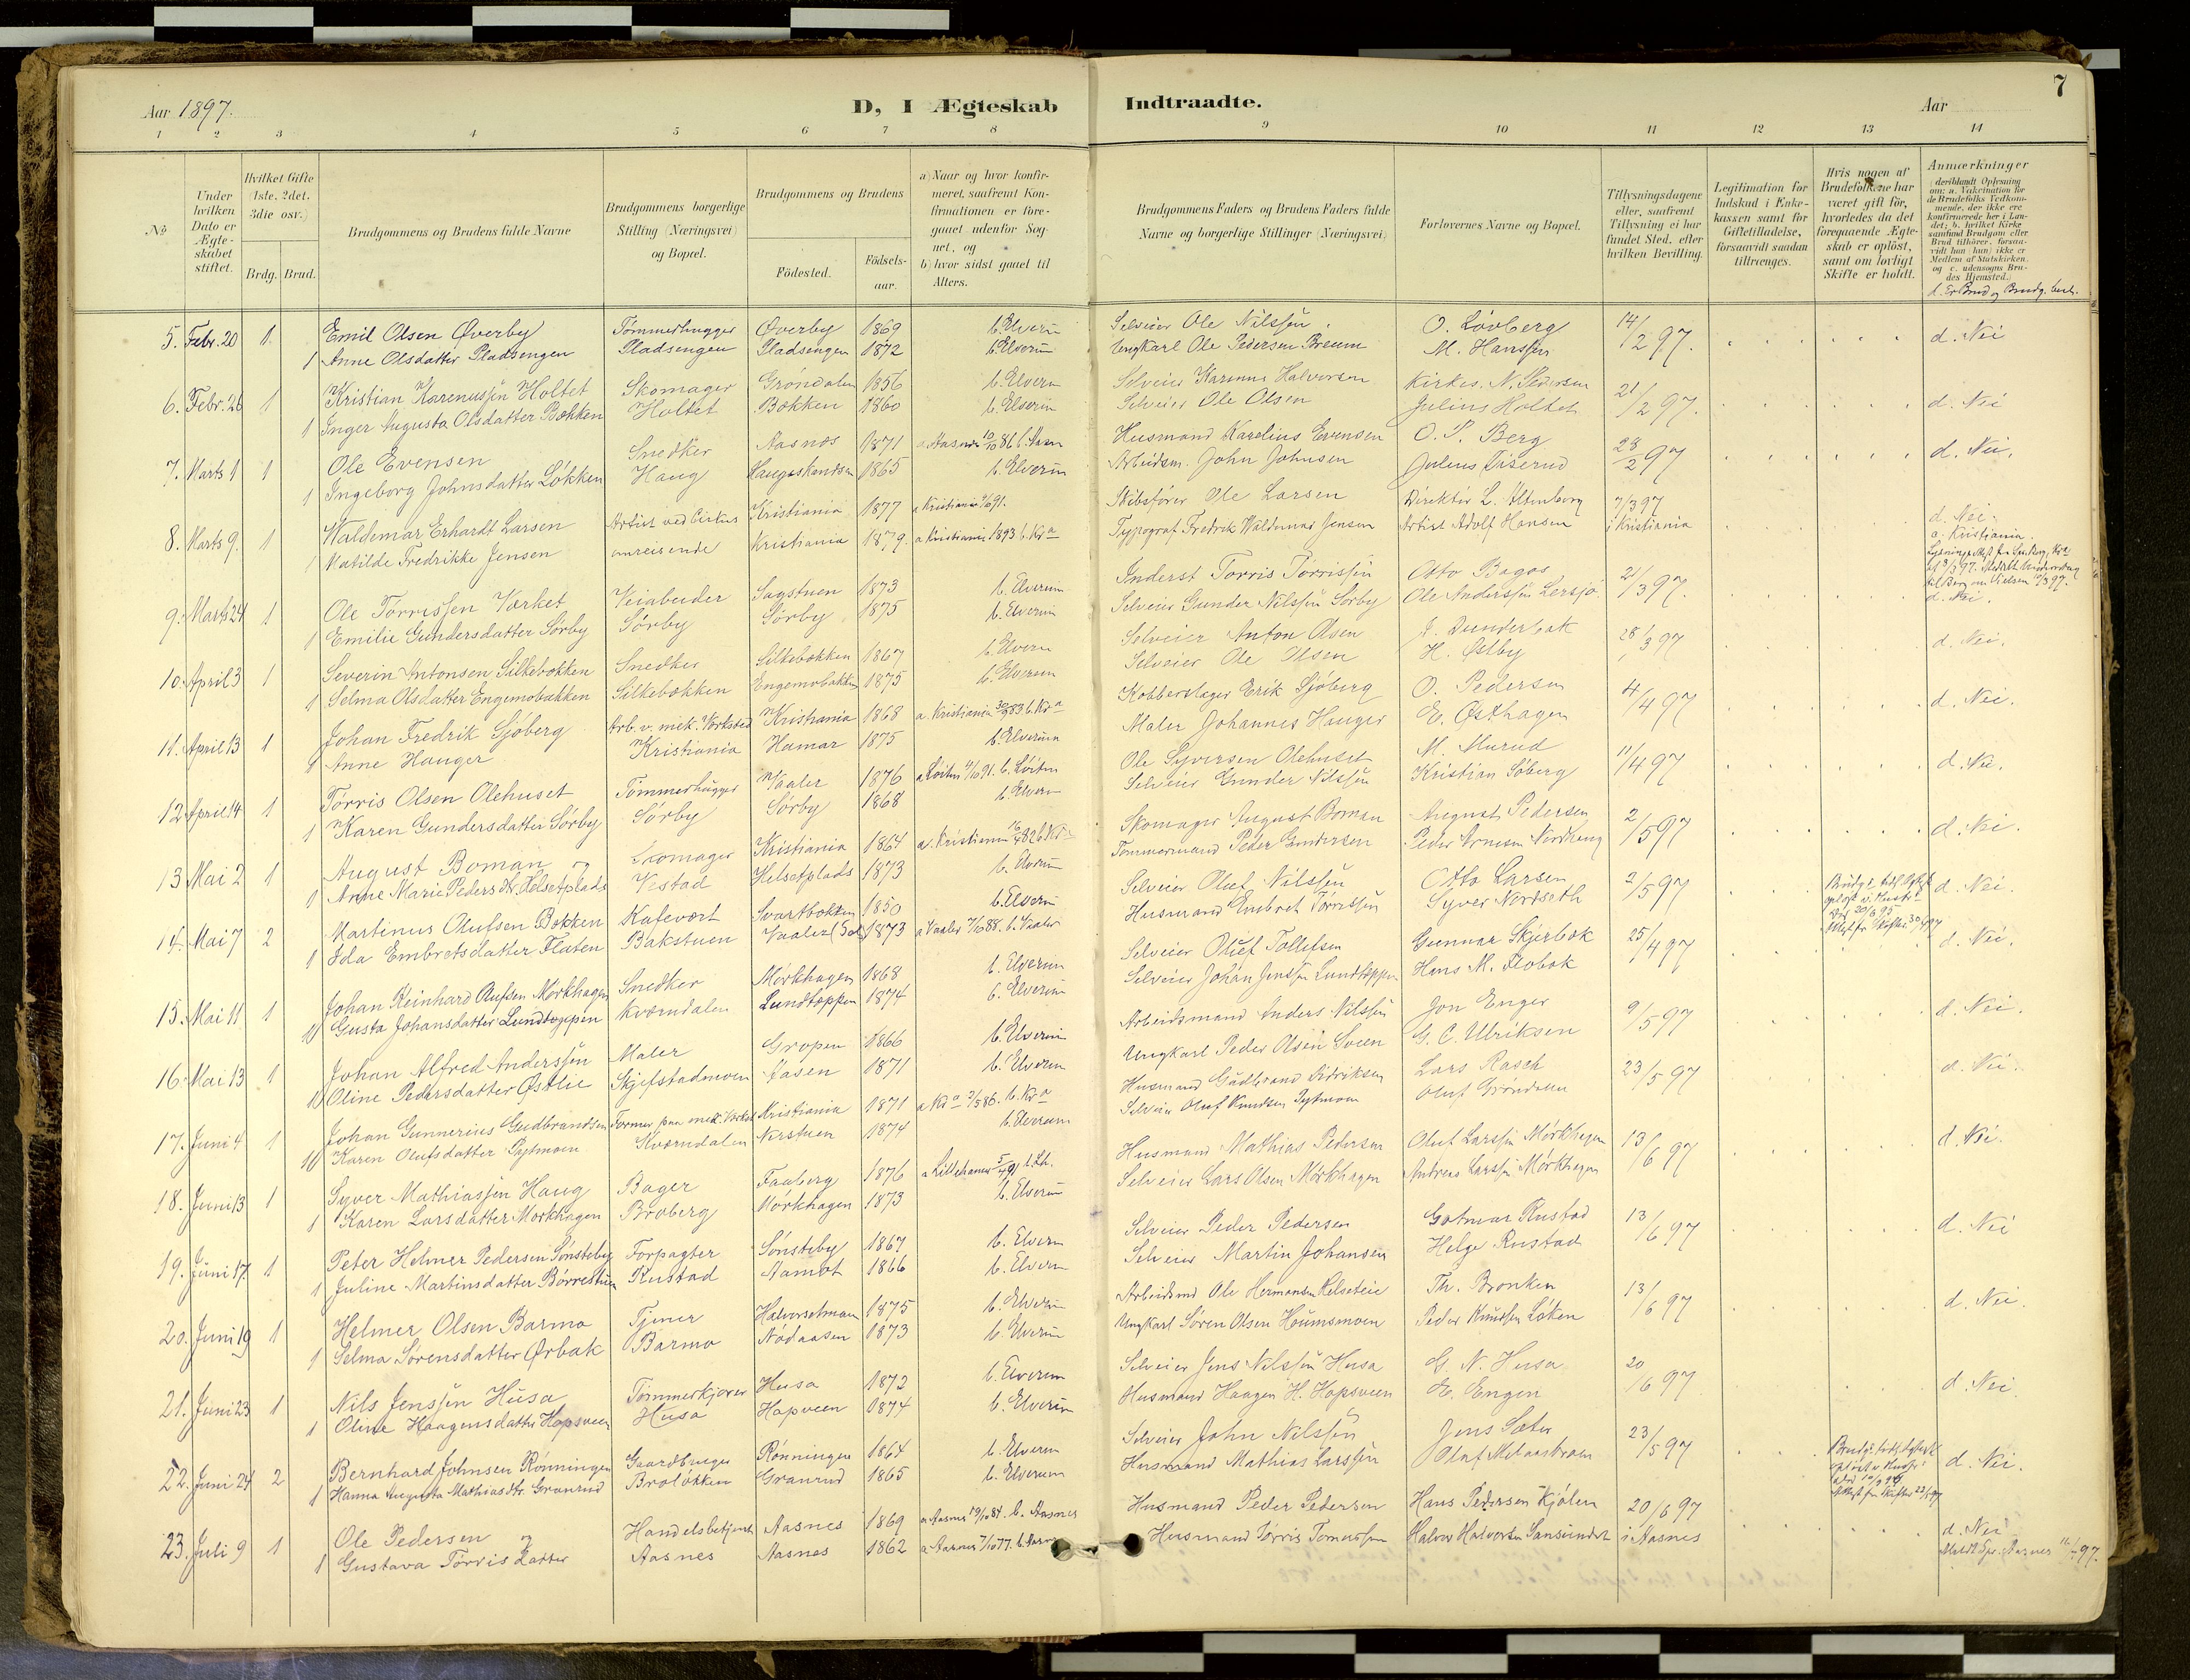 Aar 1897.
D, I Ægteskab Indtraadte.
Aar
7
1 2 3 4 5 6 7 8 9 10 11 12 13 14
No
Under hvilken Dato er Ægteskabet stiftet.
Hvilket Gifte (1ste, 2det, 3die osv.)
Brdg. Brud.
Brudgommens og Brudens fulde Navne
Brudgommens borgerlige Stilling (Næringsvei) og Bopæl.
Brudgommens og Brudens
Födested.
Födsels-aar.
a) Naar og hvor konfirmeret, saafremt Konfirmationen er foregaaet udenfor Sognet, og
b) hvor sidst gaaet til Alters.
Brudgommens Faders og Brudens Faders fulde Navne og borgerlige Stillinger (Næringsvei)
Forlovernes Navne og Bopæl.
Tillysningsdagene eller, saafremt Tillysning ei har fundet Sted, efter hvilken Bevilling.
Legitimation for Indskud i Enkekassen samt for Giftetilladelse, forsaavidt saadan tiltrænges.
Hvis nogen af Brudefolkene har været gift för, hvorledes da det foregaaende Ægteskab er oplöst, samt om lovligt Skifte er holdt.
Anmærkninger
5. Febr. 20 1 Emil Olsen Øverby Tømmerhugger Øverby 1869 b. Elverum Selveier Ole Nilssen O. Løvberg 14/2 97. d. Nei
1 Anne Olsdatter Pladsengen Pladsengen Pladsengen 1872 b. Elverum Ungkarl Ole Pedersen Breum M. Hanssen
6. Febr. 26 1 Kristian Karenussen Holtet Skomager Grøndalen 1856 b. Elverum Selveier Karenus Halvorsen Kirkes. N. Pedersen 21/2 97. d. Nei
1 Inger Augusta Olsdatter Bækken Holtet Bækken 1860 b. Elverum Selveier Ole Olsen Julius Holtet
7. Marts 1 1 Ole Evensen Snedker Aasnes 1871 a. Aasnes 10/10 86 Husmand Karelius Evensen O. P. Berg 28/2 97 d. Nei.
1 Ingeborg Johnsdatter Løkken Haug 1865 b. Elverum Arbeidsm. John Johnsen Julius
8. Marts 9. 1 Waldemar Erhardt Larsen Artist ved Cirkus Kristiania 1877 a Kristiania Skibsfører Ole Larsen Direktør L. Altenborg 7/3 97 d. Nei.
1 Matilde Fredrikke Jensen omreisende Kristiania 1879. a Kristiania 1893 b. Kra Typograf Fredrik Waldemar Jensen Artist Adolf Hansen i Kristiania a. Kristiania.
9. Marts 24 1 Ole Tørrissen Værket Veiabeider Sagstuen 1873 b. Elverum Inderst Tørris Tørrissen Otto Bagos 21/3 97. d. Nei.
1 Emilie Gundersdatter Sørby Sørby Sørby 1875 b. Elverum Selveier Gunder Nilssen Sørby Ole Anderssen Lersjø
10. April 3 1 Severin Antonsen Silkebækken Snedker Silkebækken 1867 b. Elverum Selveier Anton Olsen J. Dunderbak 28/3 97 d. Nei.
1 Selma Olsdatter Engemobakken Silkebækken Engemobakken 1875 b. Elverum Selveier Ole Olsen H. Østby
11. April 13 1 Johan Fredrik Sjøberg Arb. v. mek. Værksted Kristiania 1868 a. Kristiania b. Kra Kobberslager Erik Sjøberg O. Pedersen 4/4 97 d. Nei.
1 Anne Hauger Kristiania Hamar 1875 b. Elverum Maler Johannes Hauger E. Østhagen
12. April 14 1 Tørris Olsen Olehuset Tømmerhugger Vaaler 1876 a Løiten 91. b. Løiten Ole Syversen Olehuset M. Murud 11/4 97 d. Nei.
1 Karen Gundersdatter Sørby Sørby Sørby 1868 b. Elverum Selveier Gunder Nilssen Kristian Søberg
13 Mai 2 1 August Boman og Skomager Kristiania 1864 a. Kristiania Skomager August Boman August Pedersen 2/5 97 d. Nei.
1 Anne Marie Peders dtr. Helsetplads Vestad Helsetplads 1873 b. Elverum Tømmermand Peder Gundersen Peder Arnesen Nordhaug
14. Mai 7 2 Martinus Olufsen Bækken Kafevært Svartbækken 1850 b. Elverum Selveier Oluf Nilssen Otto Larsen 2/5 97 d. Nei.
1 Ida Embretsdatter Flaten Bakstuen Vaaler (Sol) 1873 a Vaaler 88. b. Vaaler Husmand Embret Tørrissen Syver Nordseth
15. Mai 11 1 Johan Reinhard Olufsen Mørkhagen Snedker Mørkhagen 1868 b. Elverum Selveier Oluf Tollefsen Gunnar Skjerbæk 25/4 97 d. Nei.
1 Gusta Johansdatter Lundtoppen Kværndalen Lundtoppen 1874 b. Elverum Selveier Johan Jenssen Lundtoppen Hans M. Flobak
16. Mai 13 1 Johan Alfred Anderssen Maler Gropen 1866 b. Elverum Arbeidsmand Anders Nilssen Jon Enger 9/5 97 d. Nei.
1 Oline Pedersdatter Østlie Skjefstadmoen Aasen 1871 b. Elverum Ungkarl Peder Olsen Soeen G. C. Ulriksen
17. Juni 4 1 Johan Gunnerius Gudbrandsen Former paa mek. Verksted Kristiania 1871 a Kra b. Kra Husmand Gudbrand Didriksen Lars Rasch 23/5 97 d. Nei.
1 Karen Olufsdatter Sytmoen Kværndalen Nerstuen 1874 b. Elverum Selveier Oluf Knudsen Sytmoen Oluf Grøndalen
18. Juni 13 1 Syver Mathiassen Haug Bager Faaberg 1876 a Lillehamer Husmand Mathias Pedersen Oluf Larssen Mørkhagen 13/6 97 d. Nei.
1 Karen Larsdatter Mørkhagen Broberg Mørkhagen 1873 b. Elverum Selveier Lars Olsen Mørkhagen Andreas Larssen Mørkhagen
19. Juni 17. 1 Peter Helmer Pedersen Sønsteby Forpagter Sønsteby 1867 b. Elverum Selveier Peder Pedersen Gotmar Rustad 13/6 97 d. Nei
1 Juline Martinsdatter Børrestuen Rustad Aamot 1866 b. Elverum Selveier Martin Johansen Helge Rustad
20. Juni 19 1 Helmer Olsen Barmo Tjener Halvorsetmoen 1875 b. Elverum Arbeidsmd Ole Hermansen Helseteie Th. Bronken 13/6 97 d. Nei.
1 Selma Sørensdatter Ørbak Barmo Nødaasen 1873 b. Elverum Ungkarl Søren Olsen Houmsmoen Peder Knudsen Løken
21. Juni 23 1 Nils Jenssen Husa Tømmerkjører Husa 1872 b. Elverum Selveier Jens Nilssen Husa G. N. Husa 20/6 97 d. Nei
1 Oline Haagensdatter Hapsveen Husa Hapveen 1874 b. Elverum Husmand Haagen H. Hapsveen E. Engen
22. Juni 24 2 Bernhard Johnsen Rønningen Gaardbruger Rønningen 1864 b. Elverum Selveier John Nilssen Jens Sæter 23/5 97 d. Nei.
1 Hanna Augusta Mathiasdtr. Granrud Broløkken Granrud 1865 b. Elverum Husmand Mathias Larssen Oluf Melaastrøen
23. Juli 9 1 Ole Pedersen og Handelsbetjent Aasnes 1869 a Aasnes 19/10 84. b. Aasnes Husmand Peder Pedersen Hans Pedersen Kjølen 20/6 97 d. Nei
1 Gustava Tørris Datter Aasnes Aasnes 1862 a Aasnes 7/10 77. b. Husmand Tørris Tomassen Halvor Halvorsen Sansundet i Aasnes